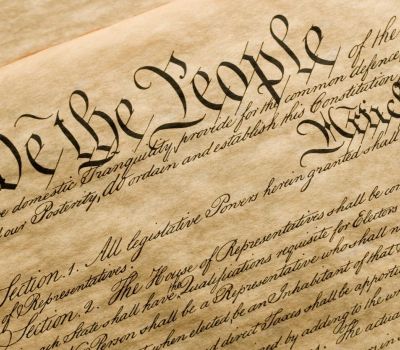 We the People of the
domestic Tranquility, provide for the common defence,
our Posterity, do ordain and establish this Constitution
Artic
Section. 1. All legislative Powers herein granted shall
of Representatives.
Section. 2. The House of Representatives shall be com
each State shall have the Qualifications requisite for Electors
No Person shall be a Representative who shall n
when elected, be an Inhabitant of that
and direct Taxes shall be apporti
by adding to the w
The actua